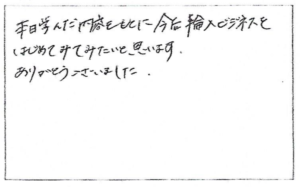 本日学んだ内容をもとに今后輸入ビジネスを
はじめてみてみたいと思います.
ありがとうございました.